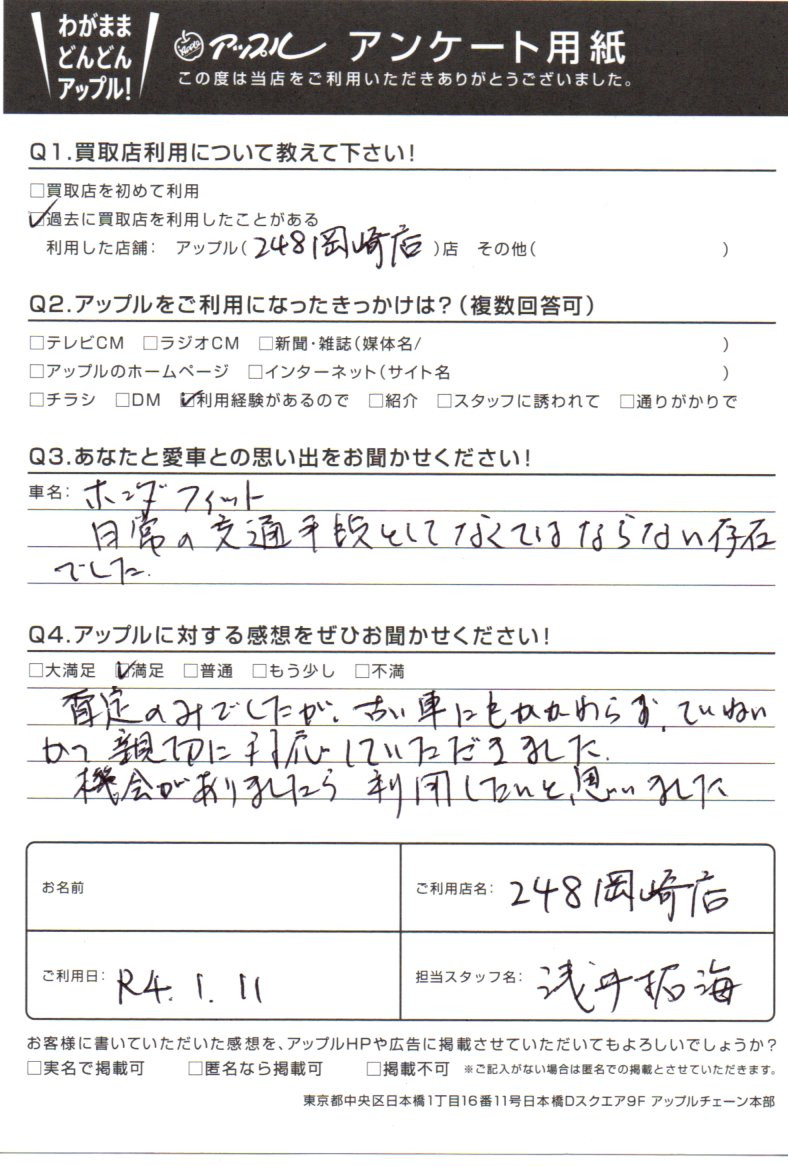 わがまま
どんどん
アップル!
アップル アンケート用紙
この度は当店をご利用いただきありがとうございました。
Q1.買取店利用について教えて下さい!
□買取店を初めて利用
☑過去に買取店を利用したことがある
利用した店舗: アップル(248岡崎店)店 その他( )
Q2.アップルをご利用になったきっかけは?(複数回答可)
□テレビCM □ラジオCM □新聞・雑誌(媒体名/ )
□アップルのホームページ □インターネット(サイト名 )
□チラシ □DM ☑利用経験があるので □紹介 □スタッフに誘われて □通りがかりで
Q3.あなたと愛車との思い出をお聞かせください!
車名: ホンダフィット
日常の交通手段としてなくてはならない存在
でした.
Q4.アップルに対する感想をぜひお聞かせください!
□大満足 ☑満足 □普通 □もう少し □不満
査定のみでしたが、古い車にもかかわらず、ていねい
かつ親切に対応していただきました.
機会がありましたら利用したいと思いました
お名前
ご利用店名: 248岡崎店
ご利用日: R4.1.11
担当スタッフ名: 浅井拓海
お客様に書いていただいた感想を、アップルHPや広告に掲載させていただいてもよろしいでしょうか?
□実名で掲載可 □匿名なら掲載可 □掲載不可 ※ご記入がない場合は匿名での掲載とさせていただきます。
東京都中央区日本橋1丁目16番11号日本橋Dスクエア9F アップルチェーン本部